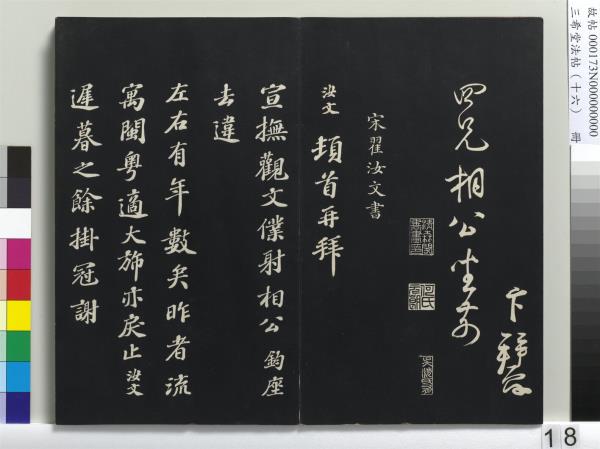 故帖 000173N000000000
三希堂法帖(十六) 冊
四兄相公坐前
宋翟汝文書
汝文 頓首再拜
宣撫觀文僕射相公 鈞座
去違
左右有年數矣昨者流
寓閩粵適大斾亦戾止 汝文
遲暮之餘掛冠謝
18